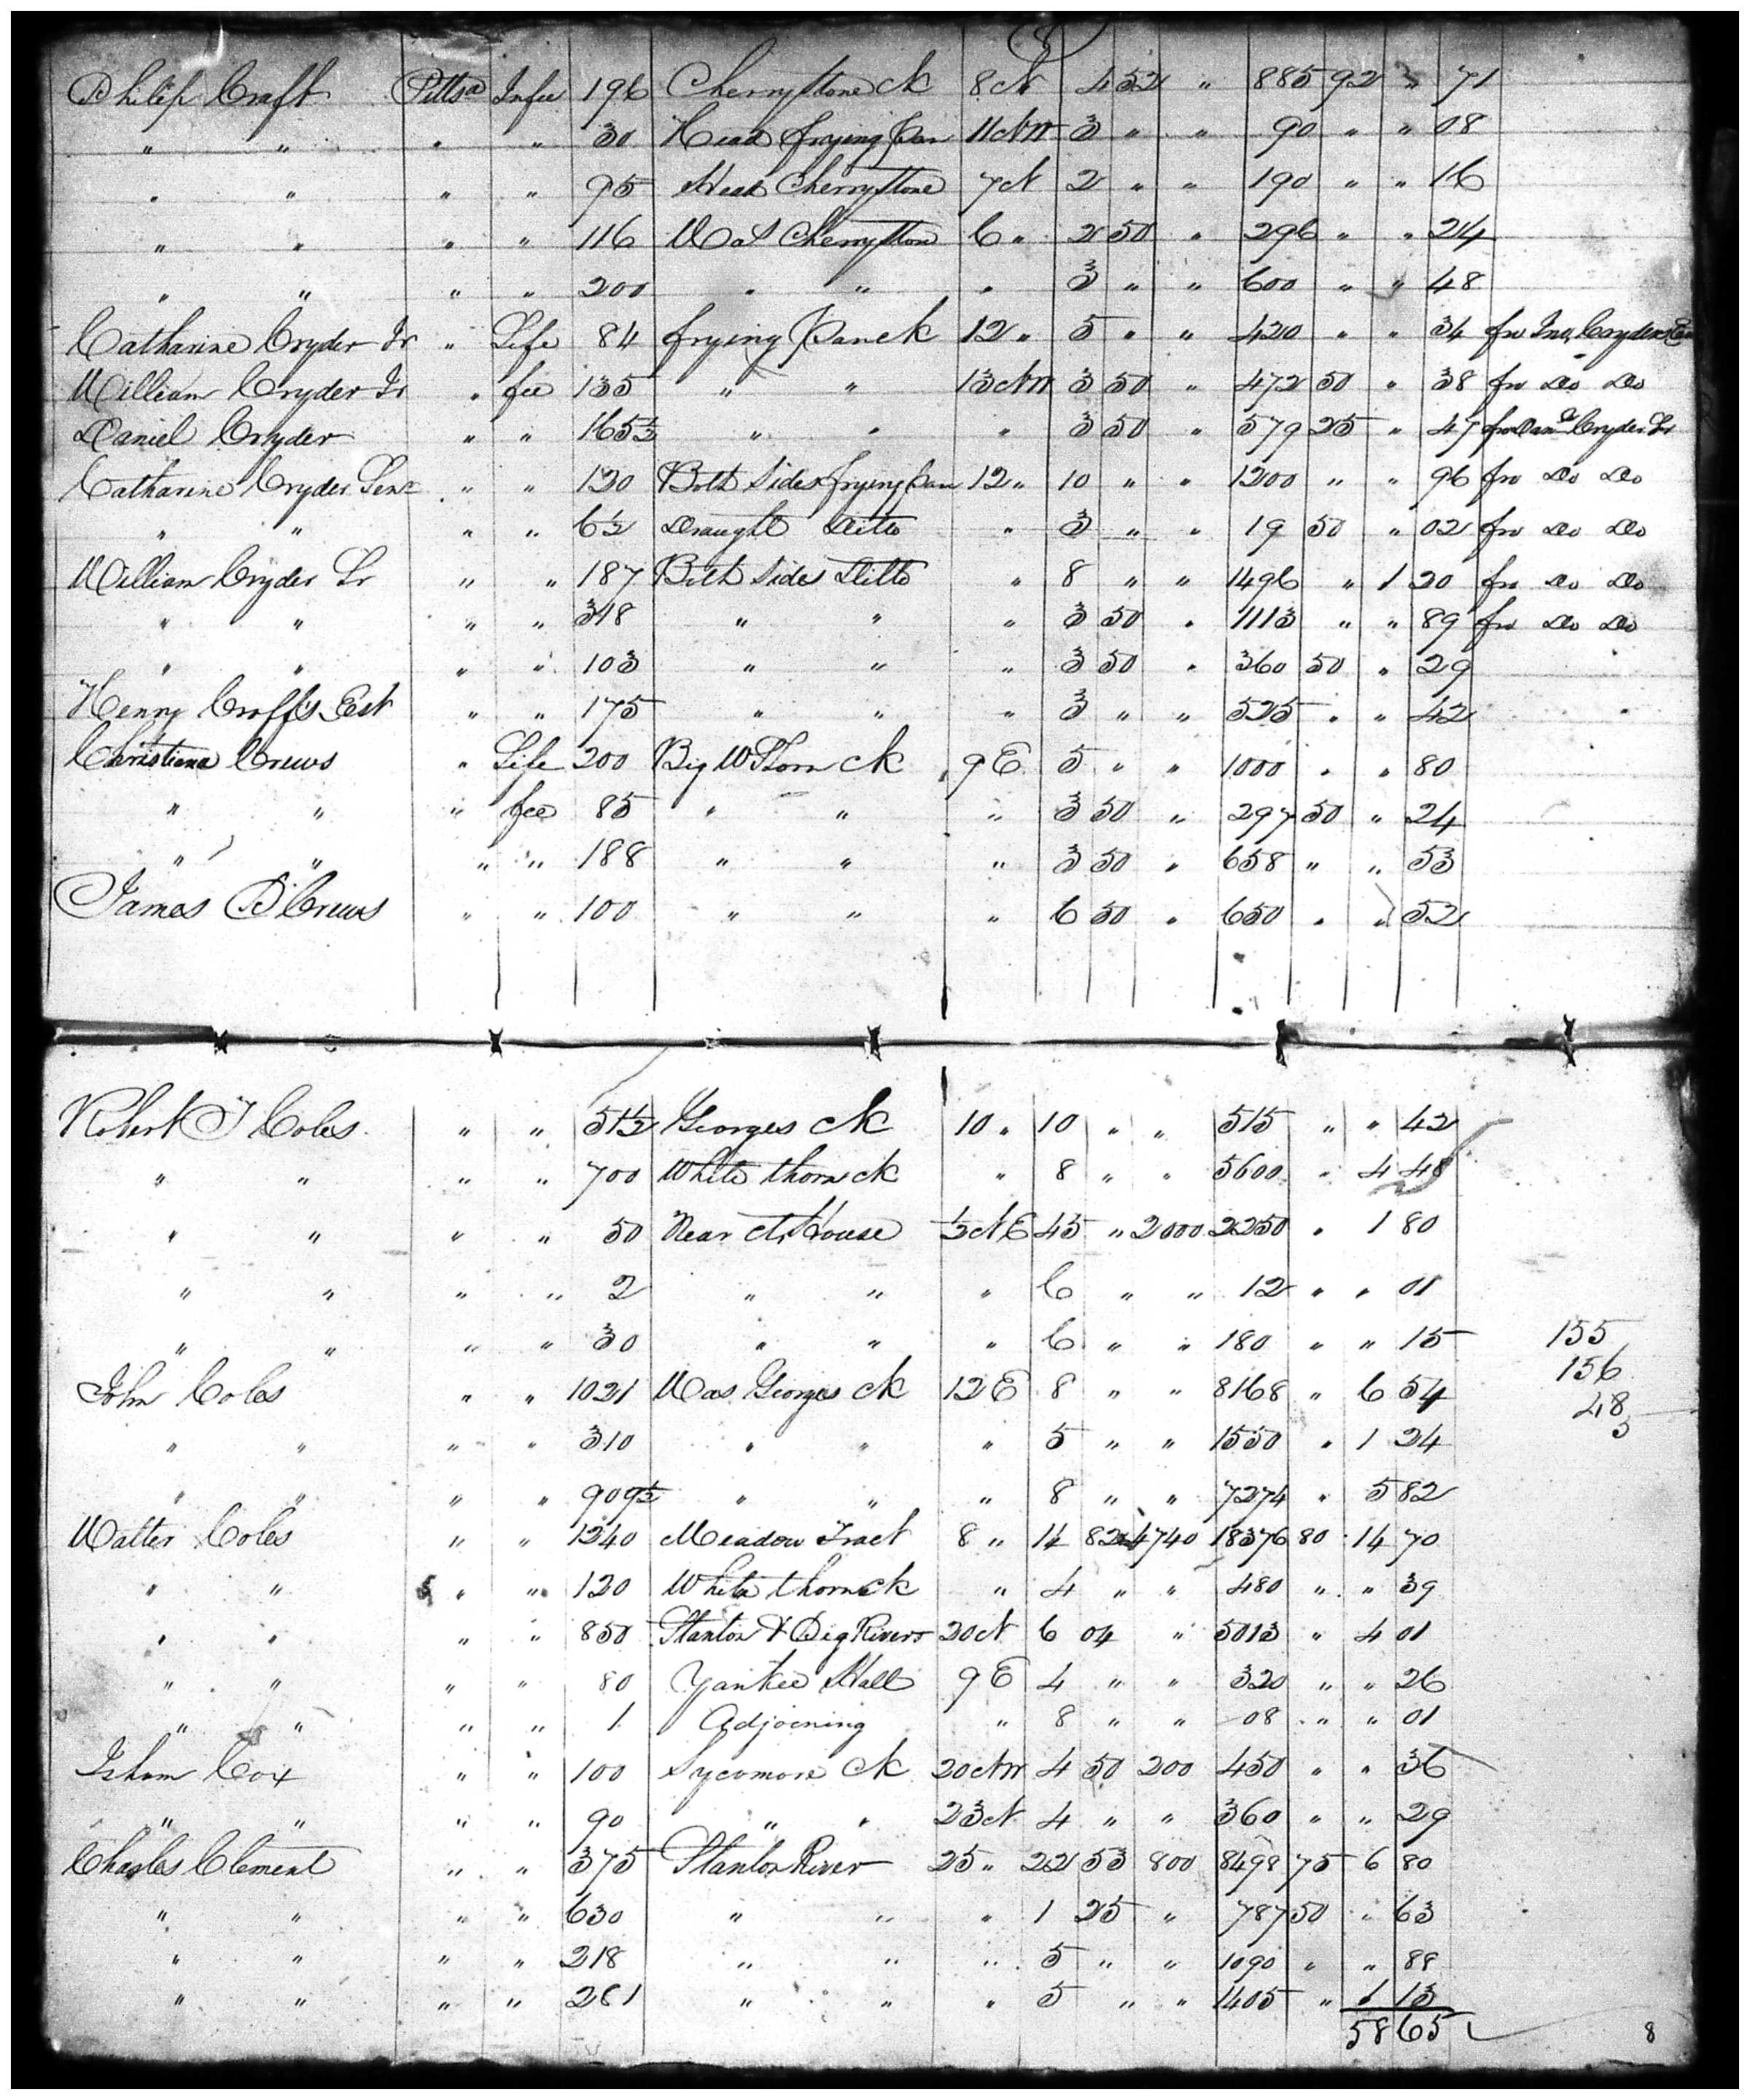 8
Philip Craft Pittsa Infee 196 Cherrystone Ck 8 N 4 52 " 885 92 " 71
" " " " 30 Head frying Pan 11 NW 3 " " 90 " " 08
" " " " 95 Head Cherrystone 7 N 2 " " 190 " " 16
" " " " 116 Wat Cherrystone 6 " 2 50 " 296 " " 24
" " " " 200 " " " 3 " " 600 " " 48
Catharine Cryder Jr " Life 84 frying Pan Ck 12 " 5 " " 420 " " 34 fro Jno Cryders Est
William Cryder Jr " fee 135 " " 13 NW 3 50 " 472 50 " 38 fro Do Do
Daniel Cryder " " 165½ " " " 3 50 " 579 25 " 47 fro Danl Cryder Sr
Catharine Cryder Senr " " 120 Both Sides frying Pan 12 " 10 " " 1200 " " 96 fro Do Do
" " " " 6½ Draught Ditto " 3 " " 19 50 " 02 fro Do Do
William Cryder Sr " " 187 Both Sides Ditto " 8 " " 1496 " 1 20 fro Do Do
" " " " 318 " " " 3 50 " 1113 " " 89 fro Do Do
" " " " 103 " " " 3 50 " 360 50 " 29
Henry Crafts Est " " 175 " " " 3 " " 525 " " 42
Christiana Crews " Life 200 Big W Thorn Ck 9 E 5 " " 1000 " " 80
" " " fee 85 " " " 3 50 " 297 50 " 24
" " " " 188 " " " 3 50 " 658 " " 53
James B Crews " " 100 " " " 6 50 " 650 " " 52
Robert T Coles " " 51½ Georges Ck 10 " 10 " " 515 " " 42
" " " " 700 White thorn Ck " 8 " " 5600 " 4 48
" " " " 50 Near Ct House ½ N E 45 " 2000 2250 " 1 80
" " " " 2 " " " 6 " " 12 " " 01
" " " " 30 " " " 6 " " 180 " " 15
155
John Coles " " 1021 Was Georges Ck 12 E 8 " " 8168 " 6 54
156
48
" " " " 310 " " " 5 " " 1550 " 1 24
5
" " " " 909½ " " " 8 " " 7274 " 5 82
Walter Coles " " 1240 Meadow Tract 8 " 14 82 4740 18376 80 14 70
" " " " 120 White thorn Ck " 4 " " 480 " " 39
" " " " 850 Stanton & Pig Rivers 20 N 6 04 " 5013 " 4 01
" " " " 80 Yankee Hall 9 E 4 " " 320 " " 26
" " " " 1 Adjoening " 8 " " 08 " " 01
Isham Cox " " 100 Sycomore Ck 20 NW 4 50 200 450 " " 36
" " " " 90 " " 23 N 4 " " 360 " " 29
Charles Clement " " 375 Stanton River 25 " 22 53 800 8498 75 6 80
" " " " 630 " " " 1 25 " 787 50 " 63
" " " " 218 " " " 5 " " 1090 " " 88
" " " " 281 " " " 5 " " 1405 " 1 13
58 65
8